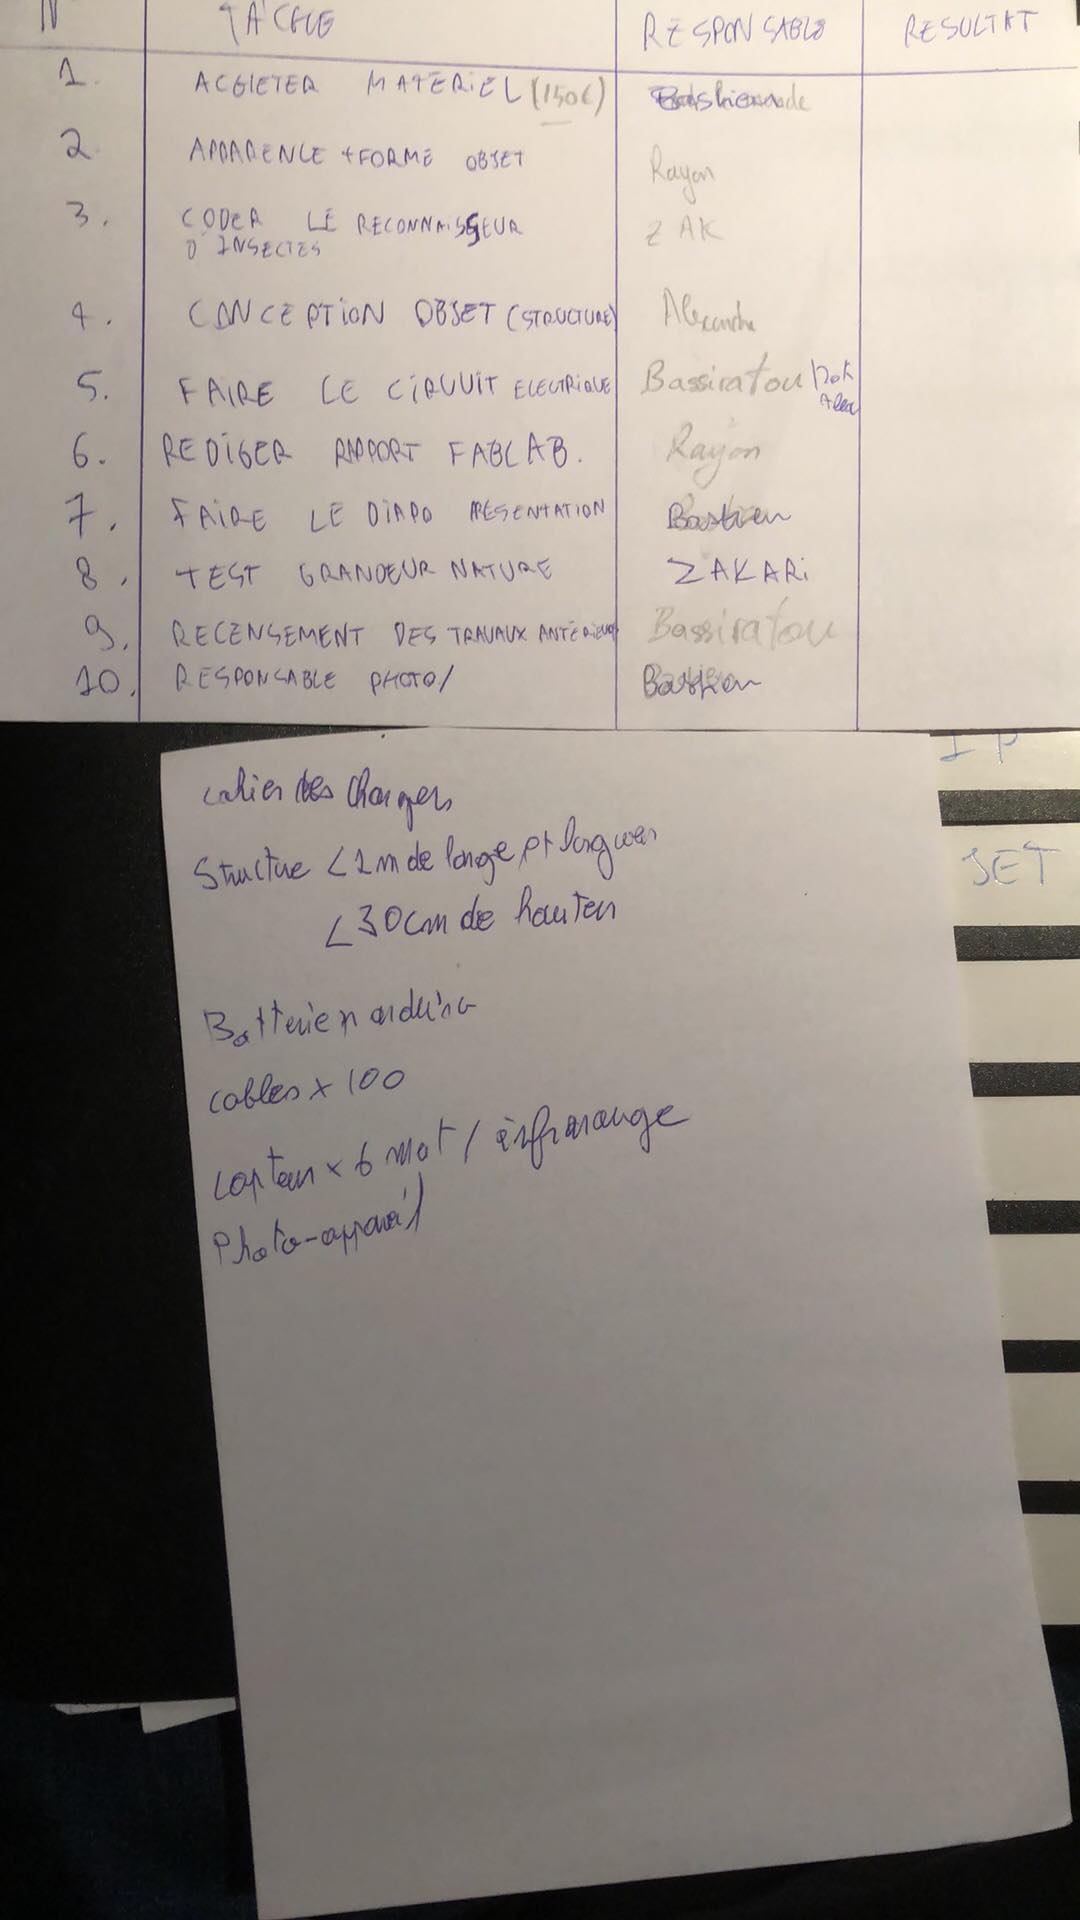 N° TÂCHE RESPONSABLE RESULTAT
1. ACHETER MATERIEL (150€)
2. APPARENCE + FORME OBJET Rayan
3. CODER LE RECONNAISSEUR D'INSECTES ZAK
4. CONCEPTION OBJET (STRUCTURE) Alexandre
5. FAIRE LE CIRUUIT ELECTRIQUE Bassiratou Alex
6. REDIGER RAPPORT FABLAB. Rayan
7. FAIRE LE DIAPO PRESENTATION Bastien
8. TEST GRANDEUR NATURE ZAKARi
9. RECENSEMENT DES TRAVAUX ANTÉRIEURS Bassiratou
10. RESPONSABLE PHOTO/ Bastien
Cahier des Charges
Structure <1m de large et longueur
<30cm de hauteur
Batterie arduino
cables x 100
capteur x 6 / infrarouge
Photo-appareil
JET